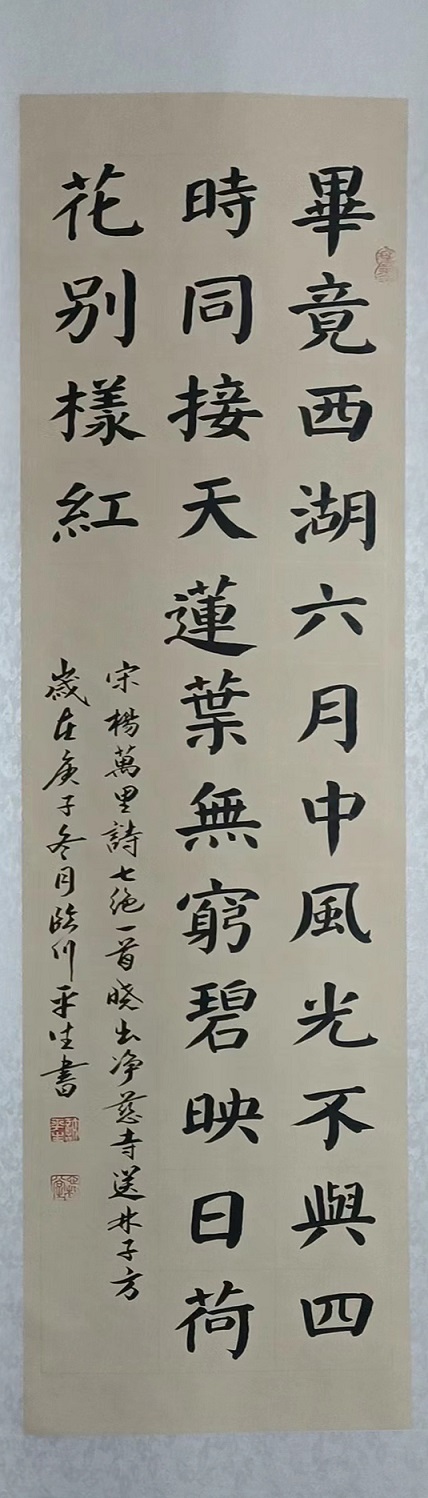 畢竟西湖六月中風光不與四
時同接天蓮葉無窮碧映日荷
花别樣紅
宋楊萬里詩七绝一首曉出净慈寺送林子方
歲在庚子冬月臨川平生書